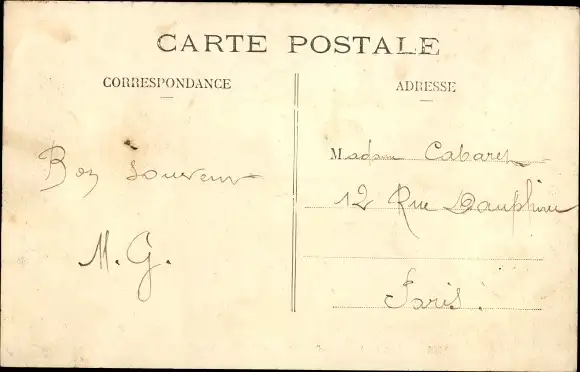 CARTE POSTALE
CORRESPONDANCE
ADRESSE
Bon Souvenir
M. G.
Madame Cabaret
12 Rue Dauphine
Paris.